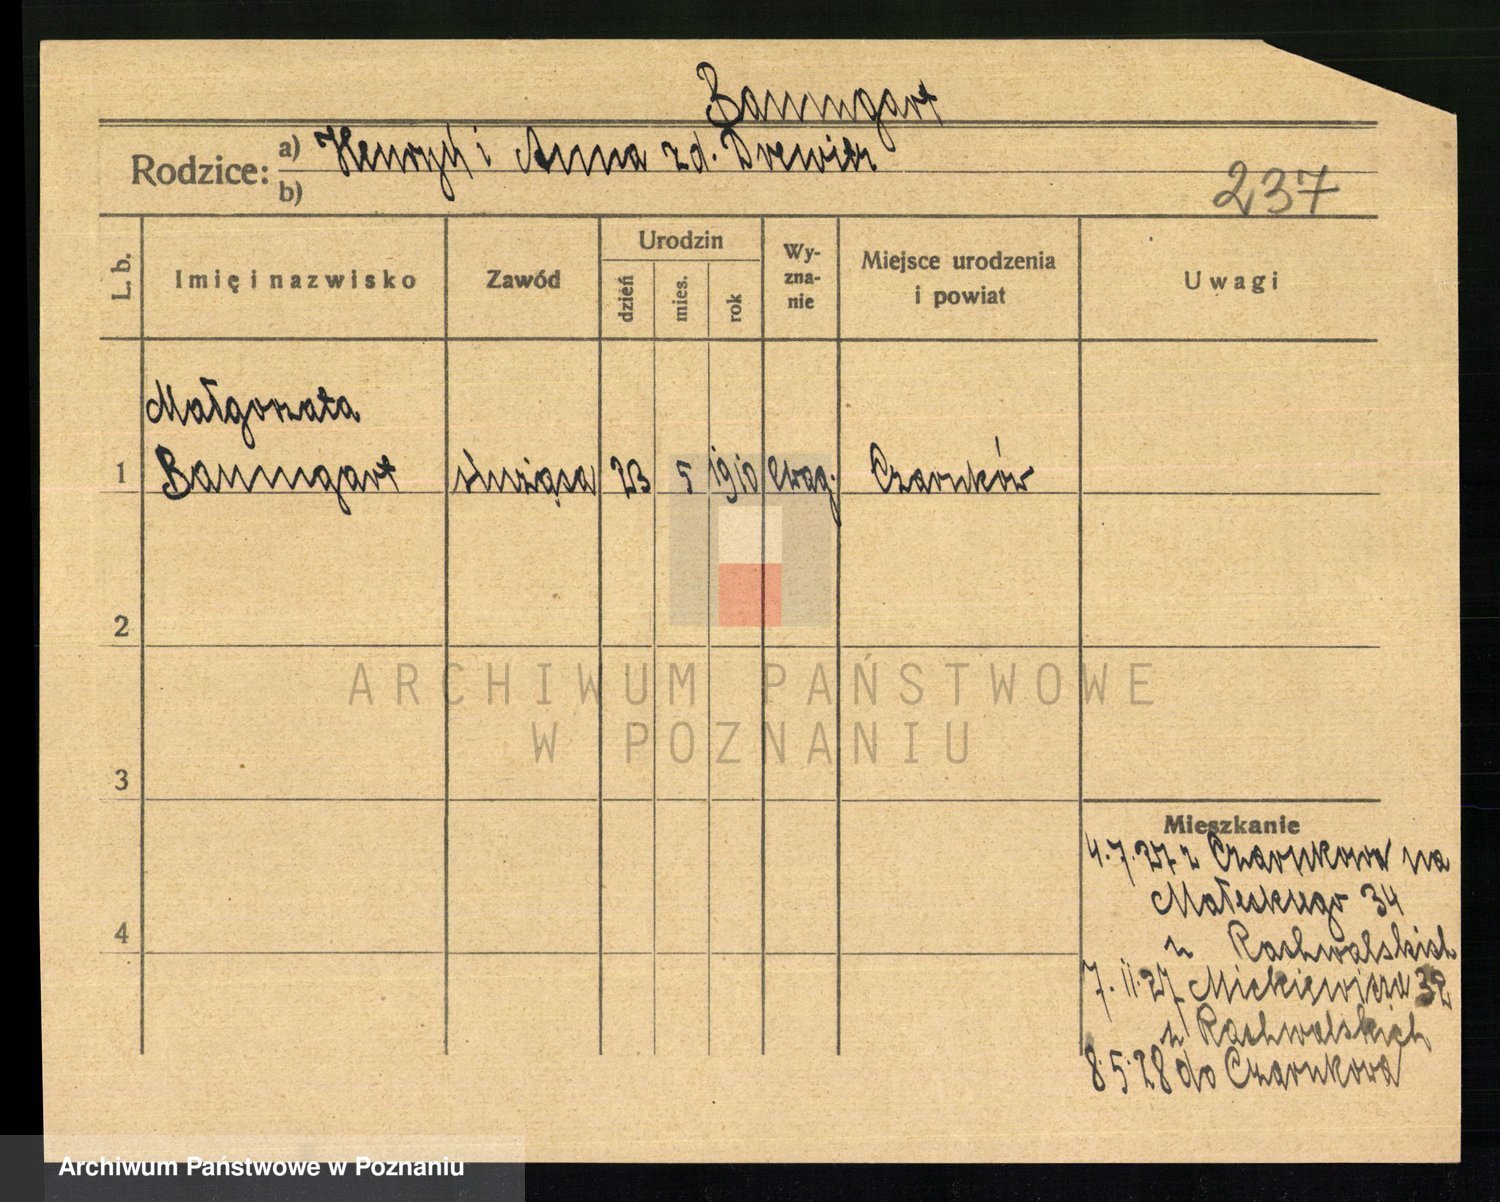 Baumgart
Rodzice: a) Henryk i Anna zd. Drewitz
b)
237
L. b.
Imię i nazwisko
Zawód
Urodzin
dzień
mies.
rok
Wy-
zna-
nie
Miejsce urodzenia
i powiat
Uwagi
Małgorzata
1 Baumgart służąca 23 5 1910 ewag. Czarnków
2
3
4
Mieszkanie
4.7.27 z Czarnkowa na
Małeckiego 34
u Rachwalskich
7.11.27 Mickiewicza 32
u Rachwalskich
8.5.28 do Czarnkowa
ARCHIWUM PAŃSTWOWE
W POZNANIU
Archiwum Państwowe w Poznaniu